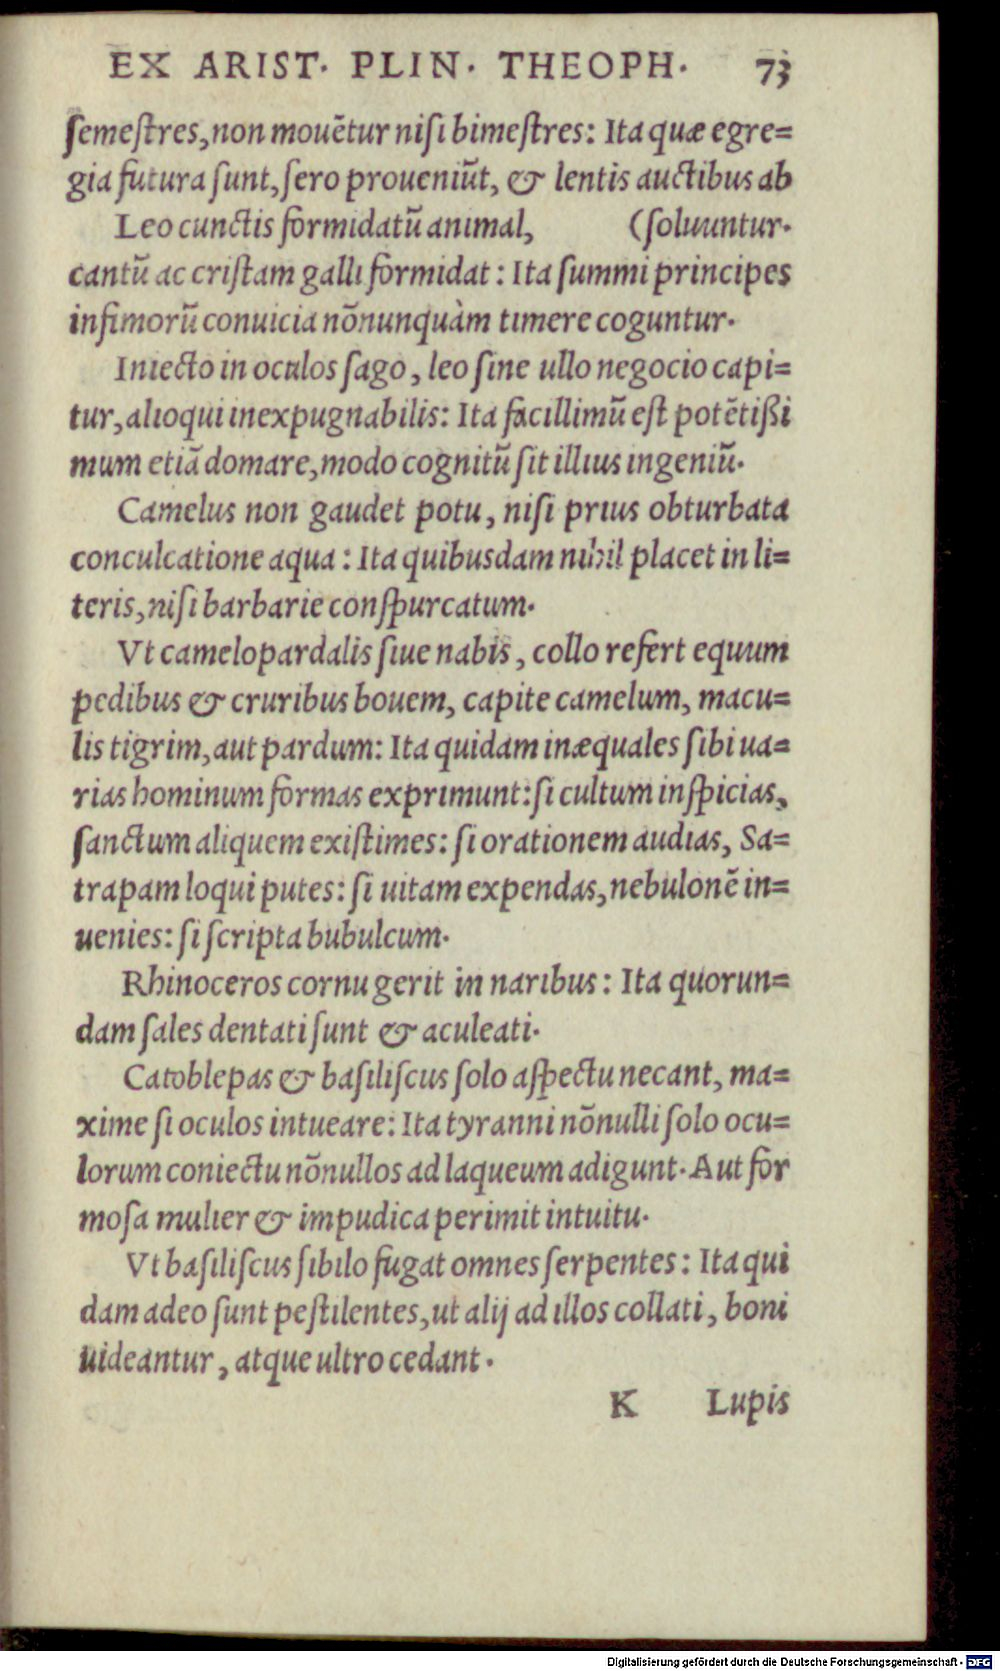 EX ARIST. PLIN. THEOPH. 73
semestres, non mouẽtur nisi bimestres: Ita quæ egre=
gia futura sunt, sero proueniũt, & lentis auctibus ab
Leo cunctis formidatũ animal, (soluuntur.
cantũ ac cristam galli formidat: Ita summi principes
infimorũ conuicia nõnunquàm timere coguntur.
Iniecto in oculos sago, leo sine ullo negocio capi=
tur, alioqui inexpugnabilis: Ita facillimũ est potẽtißi
mum etiã domare, modo cognitũ sit illius ingeniũ.
Camelus non gaudet potu, nisi prius obturbata
conculcatione aqua: Ita quibusdam nihil placet in li=
teris, nisi barbarie conspurcatum.
Vt camelopardalis siue nabis, collo refert equum
pedibus & cruribus bouem, capite camelum, macu=
lis tigrim, aut pardum: Ita quidam inæquales sibi ua=
rias hominum formas exprimunt: si cultum inspicias,
sanctum aliquem existimes: si orationem audias, Sa=
trapam loqui putes: si uitam expendas, nebulonẽ in=
uenies: si scripta bubulcum.
Rhinoceros cornu gerit in naribus: Ita quorun=
dam sales dentati sunt & aculeati.
Catoblepas & basiliscus solo aspectu necant, ma=
xime si oculos intueare: Ita tyranni nõnulli solo ocu=
lorum coniectu nõnullos ad laqueum adigunt. Aut for
mosa mulier & impudica perimit intuitu.
Vt basiliscus sibilo fugat omnes serpentes: Ita qui
dam adeo sunt pestilentes, ut alij ad illos collati, boni
uideantur, atque ultro cedant.
K Lupis
Digitalisierung gefördert durch die Deutsche Forschungsgemeinschaft - DFG